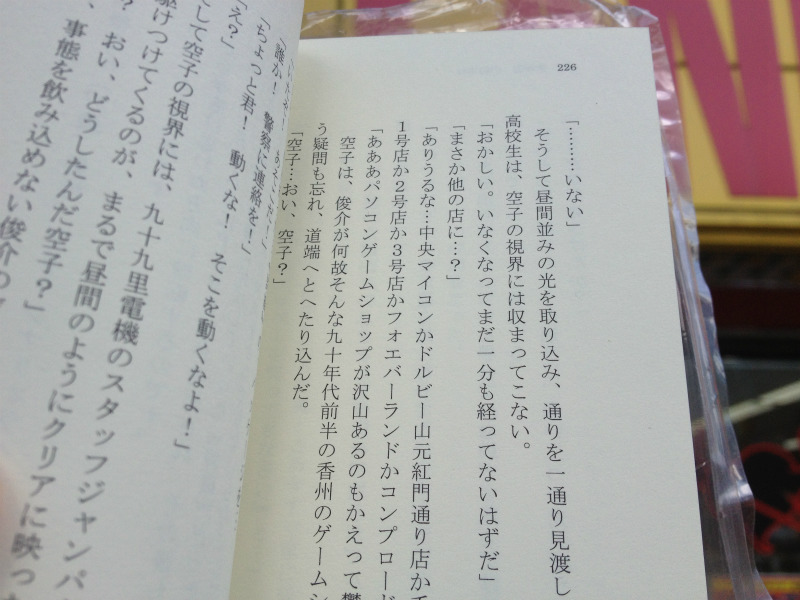 226
「………いない」
そうして昼間並みの光を取り込み、通りを一通り見渡し
高校生は、空子の視界には収まってこない。
「おかしい。いなくなってまだ一分も経ってないはずだ」
「まさか他の店に…？」
「ありうるな…中央マイコンかドルビー山元紅門通り店か
１号店か２号店か３号店かフォエバーランドかコンプロード
「あああパソコンゲームショップが沢山あるのもかえって
空子は、俊介が何故そんな九十年代前半の香州のゲーム
う疑問も忘れ、道端へとへたり込んだ。
「空子…おい、空子？」
誰か！ 警察に連絡を！」
「ちょっと君！ 動くな！ そこを動くなよ！」
「え？」
して空子の視界には、九十九里電機のスタッフジャンパ
駆けつけてくるのが、まるで昼間のようにクリアに映った
？ おい、どうしたんだ空子？」
、事態を飲み込めない俊介の